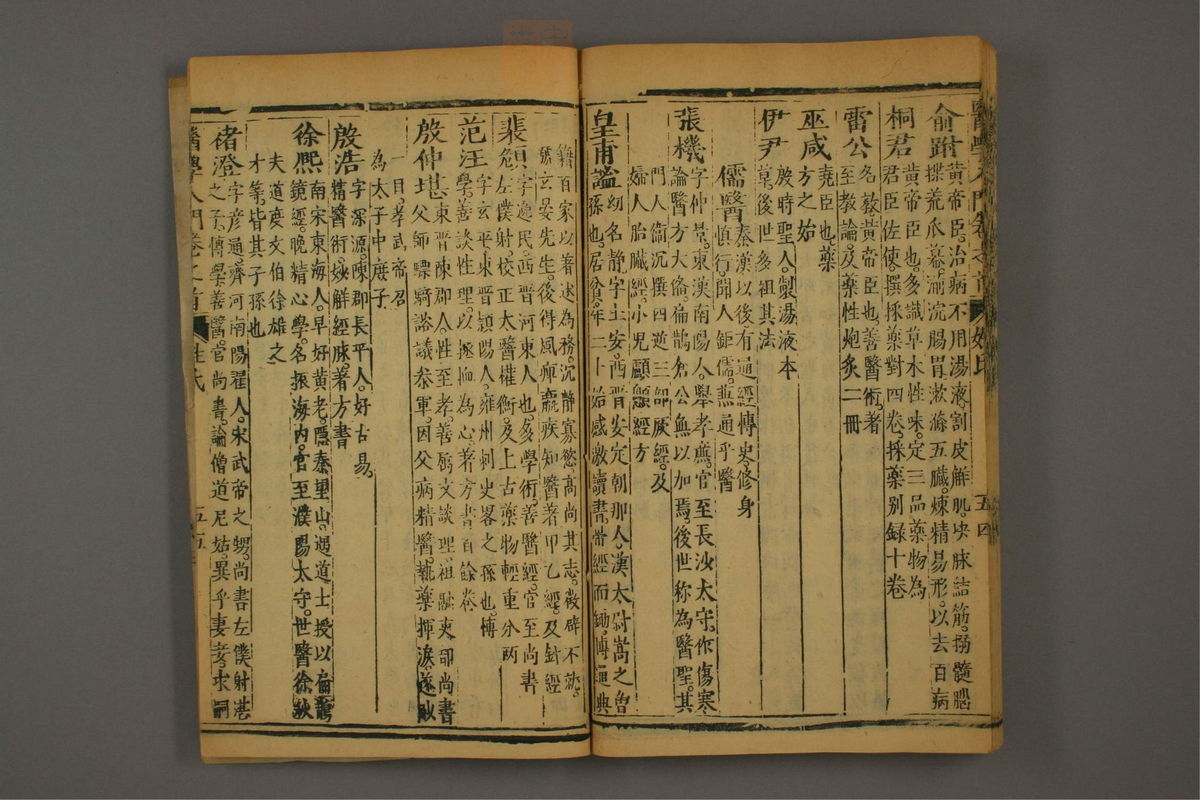 醫學入門卷之首 姓氏 五四
俞跗 黃帝臣。治病不用湯液。割皮解肌。決脉結筋。搦髓腦
揲荒爪幕。湔浣腸胃。漱滌五臟。煉精易形。以去百病
桐君 黃帝臣也。多識草木性味。定三品藥物。為
君臣佐使。撰採藥對四卷。採藥別録十卷
雷公 名斅。黃帝臣也。善醫術。著
至教論。及藥性炮炙二冊
巫咸 堯臣也。藥
方之始
伊尹 殷時聖人。製湯液本
草。後世多祖其法
儒醫 秦漢以後。有通經博史。修身
慎行。聞人鉅儒。兼通乎醫
張機 字仲景。東漢南陽人。舉孝廉。官至長沙太守。作傷寒
論。醫方大備。扁鵲倉公無以加焉。後世称為醫聖。其
門人衞沉撰四逆三部厥經。及
婦人胎臟經。小児顱顖經方
皇甫謐 幼名静。字士安。西晋安定朝那人。漢太尉嵩之曽
孫也。居貧。年二十始感激讀書。帶經而鋤。博通典
籍百家。以著述為務。沉静寡慾。高尚其志。徵辟不就。
號玄晏先生。後得風痺羸疾。知醫。著甲乙經。及針經
裴頠 字逸民。西晋河東人也。多學術。善醫經。官至尚書
左僕射。校正太醫權衡。及上古藥物輕重分兩
范汪 字玄平。東晋潁陽人。雍州刺史畧之孫也。博
學善談性理。以拯恤為心。著方書百餘卷
殷仲堪 東晋陳郡人。性至孝。善屬文談理。祖融吏部尚書
父師驃騎諮議参軍。因父病精醫。執藥揮淚。遂眇
一目。孝武帝召
為太子中庶子
殷浩 字深源。陳郡長平人。好古易。
精醫術。妙解經脉。著方書
徐熈 南宋東海人。早好黃老。隱秦里山。遇道士授以扁鵲
鏡經。晚精心學。名振海内。官至濮陽太守。世醫徐秋
夫道度文伯徐雄之
才等。皆其子孫也
褚澄 字彦通。齊河南陽翟人。宋武帝之甥。尚書左僕射湛
之之子。博學善醫。官尚書。論僧道尼姑。異乎妻妾。求嗣
醫學入門卷之首 姓氏 五五